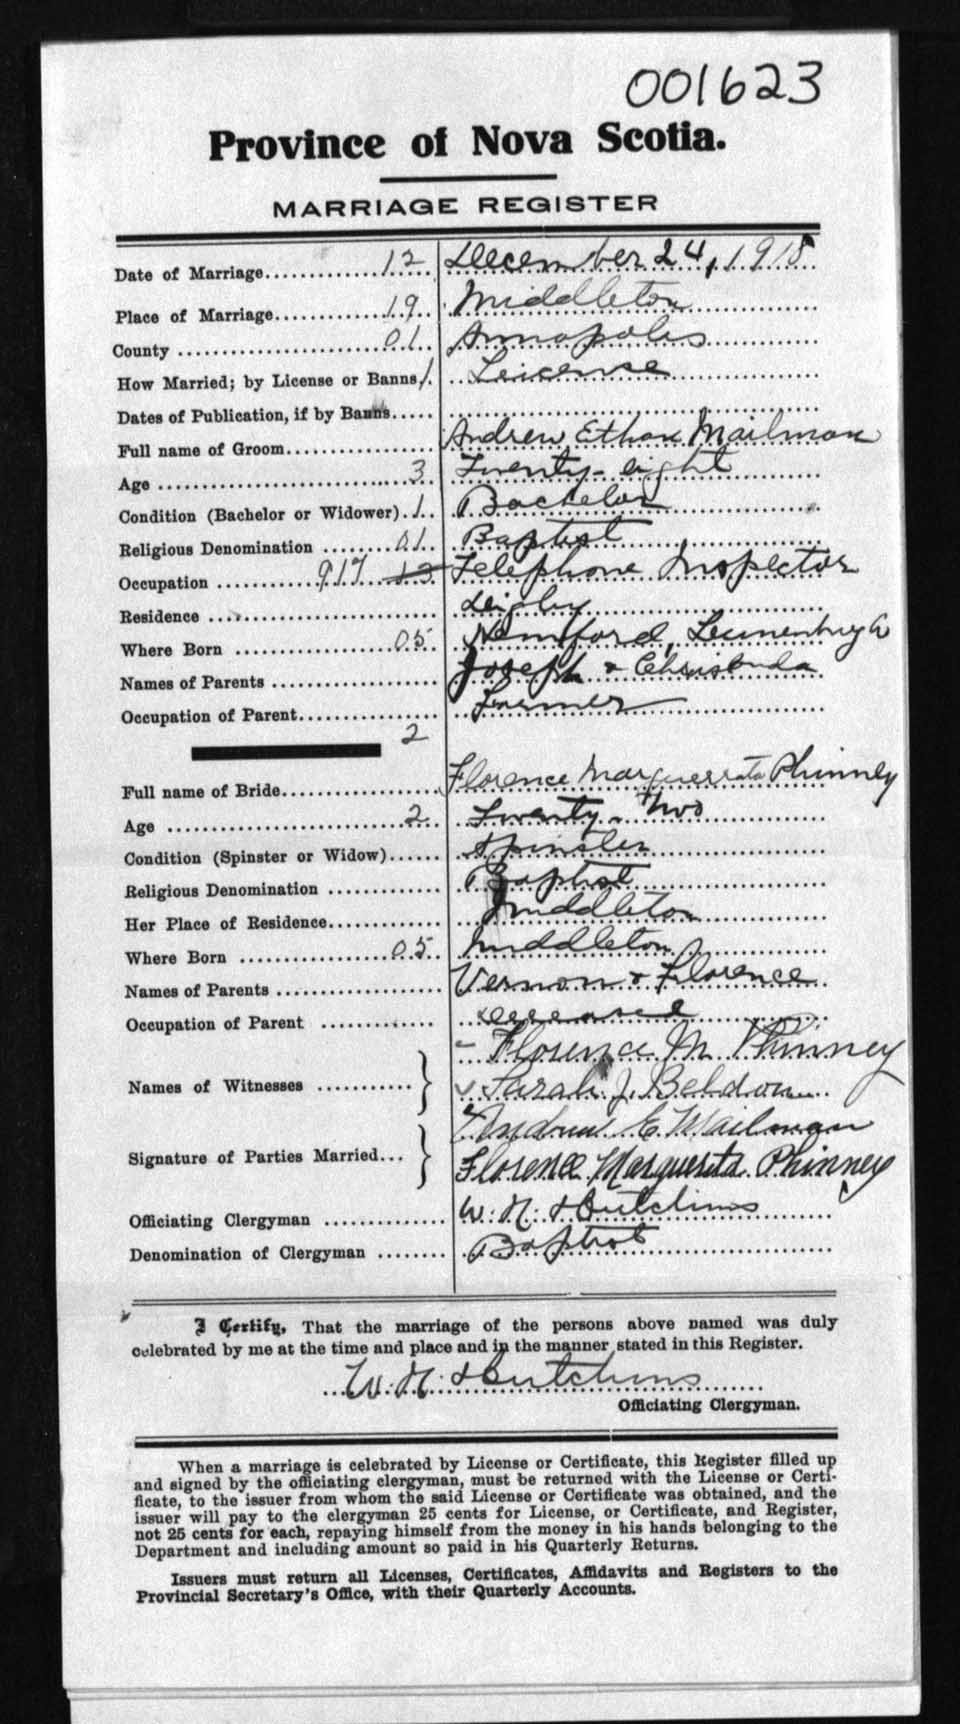 001623
Province of Nova Scotia.
MARRIAGE REGISTER
Date of Marriage............... 12 December 24, 1918
Place of Marriage............... 19 Middleton
County ............... 01 Annapolis
How Married; by License or Banns 1 Leicense
Dates of Publication, if by Banns.....
Full name of Groom............... Andrew Ethan Mailman
Age ............... 3 Twenty-eight
Condition (Bachelor or Widower) 1 Bachelor
Religious Denomination ........ 01 Baptist
Occupation .......... 917 13 Telephone Inspector
Residence ............... Digby
Where Born ............... 05 Lunenburg Co
Names of Parents ............... Joseph &
Occupation of Parent............... Farmer
2
Full name of Bride............... Florence Marguerrata Phinney
Age ............... 2 Twenty-two
Condition (Spinster or Widow)...... Spinster
Religious Denomination ............ Baptist
Her Place of Residence............ Middleton
Where Born ............... 05 Middleton
Names of Parents ............... Vernon & Florence
Occupation of Parent ............ deceased
Florence M Phinney
Names of Witnesses ............ } Sarah J. Beldon
Andrew E Mailman
Signature of Parties Married... } Florence Marguerita Phinney
Officiating Clergyman ............ W. N. Hutchins
Denomination of Clergyman ........ Baptist
I Certify, That the marriage of the persons above named was duly
celebrated by me at the time and place and in the manner stated in this Register.
W. N. Hutchins
Officiating Clergyman.
When a marriage is celebrated by License or Certificate, this Register filled up
and signed by the officiating clergyman, must be returned with the License or Certi-
ficate, to the issuer from whom the said License or Certificate was obtained, and the
issuer will pay to the clergyman 25 cents for License, or Certificate, and Register,
not 25 cents for each, repaying himself from the money in his hands belonging to the
Department and including amount so paid in his Quarterly Returns.
Issuers must return all Licenses, Certificates, Affidavits and Registers to the
Provincial Secretary's Office, with their Quarterly Accounts.